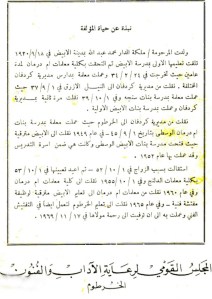 نبذة عن حياة المؤلفة
ولدت المرحومة / ملكة الدار محمد عبد الله بمدينة الأبيض في ١٩٢٠/٩/١٨
تلقت تعليمها الأولى بمدرسة الأبيض ثم التحقت بكلية معلمات أم درمان لمدة
عامين حيث تخرجت في ٣٤/٢/٢١ وعملت معلمة بمدارس مديرية كردفان
المختلفة . نقلت من مديرية كردفان الى النيل الأزرق في ٣٧/٩/١ حيث
عملت معلمة بمدرسة بنات سنجه وفي ٣٩/١٠/١ نقلت مرة ثانية بمديرية
كردفان حيث عملت بمدرسة بنات الأبيض الأولية .
نقلت من مديرية كردفان الى الخرطوم حيث عملت بمدرسة
أم درمان الوسطى بتاريخ ٤٥/٩/١ وفي عام ١٩٤٦ نقلت الى الأبيض مترقية
حيث فتحت مدرسة بنات الأبيض الوسطى وكانت هي ضمن أسرة التدريس
وقد عملت بها عام ١٩٥٢ .
استقالت بسبب الزواج في ٥٢/١٠/١ - ثم أعيد تعيينها في ٥٣/١٠/١
بكلية معلمات الدلنج وفي ١٩٥٥/١٠/١ نقلت الى كلية معلمات أم درمان
وفي عام ١٩٦٠ نقلت من معلمات أم درمان الى تعليم الأبيض مترقية لوظيفة
مفتشة فنية - وفي عام ١٩٦٥ نقلت الى تعليم الخرطوم لتعمل أيضا في التفتيش
الفني وعملت به الى أن توفيت الى رحمة مولاها في ١٩٦٩/١١/١٧ .
المجلس القومي لرعاية الآداب والفنون
الخرطوم